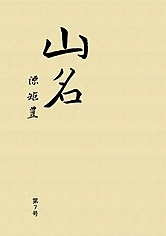 山名
源矩豊
第７号